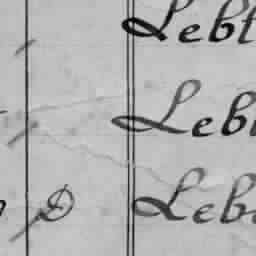 Lebt
Leb
D Leb